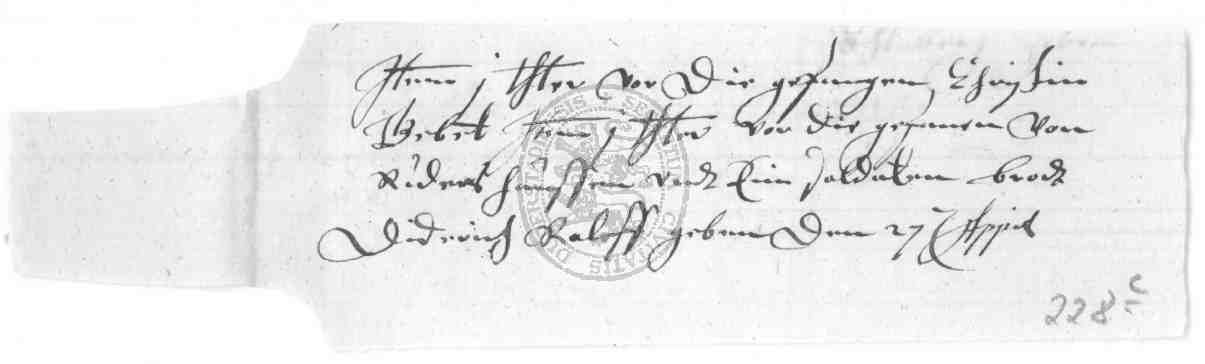 Item j thler vor Die gefangen Christin
Bebek Item j thler vor die gefanen von
Rüdershaussen undt Ein soldaten brodt
Diderich Raloff geben Den 27 Appril
228 c